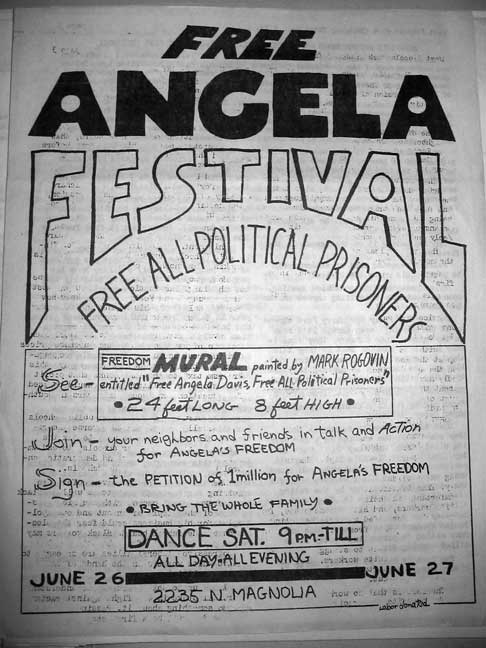 FREE
ANGELA
FESTIVAL
FREE ALL POLITICAL PRISONERS
See - FREEDOM MURAL painted by MARK ROGOVIN
entitled "Free Angela Davis, Free All Political Prisoners"
• 24 feet LONG 8 feet HIGH •
Join - your neighbors and friends in talk and ACTION
for ANGELA'S FREEDOM
Sign - the PETITION of 1million for ANGELA'S FREEDOM
• BRING THE WHOLE FAMILY •
DANCE SAT. 9PM-TILL
ALL DAY-ALL EVENING
JUNE 26 JUNE 27
2235 N. MAGNOLIA
labor donated